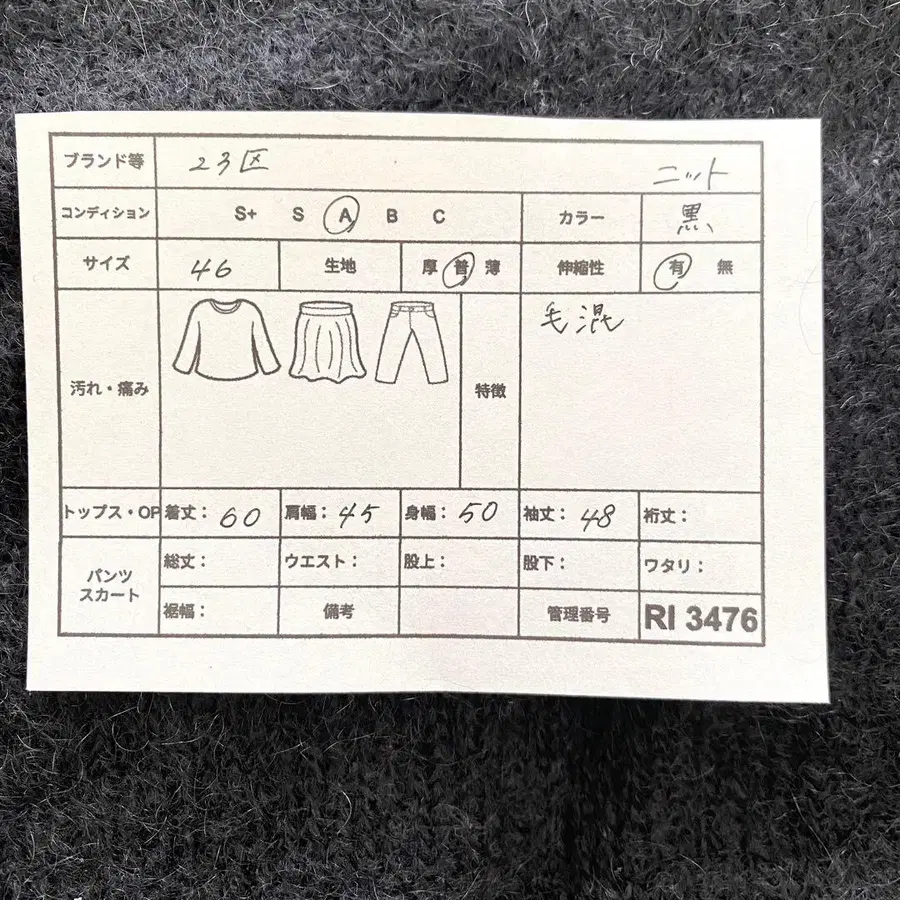 ブランド等 23区 ニット
コンディション S+ S A B C カラー 黒
サイズ 46 生地 厚 普 薄 伸縮性 有 無
汚れ・痛み 特徴 毛混
トップス・OP 着丈： 60 肩幅： 45 身幅： 50 袖丈： 48 裄丈：
パンツ スカート 総丈： ウエスト： 股上： 股下： ワタリ：
裾幅： 備考 管理番号 RI 3476